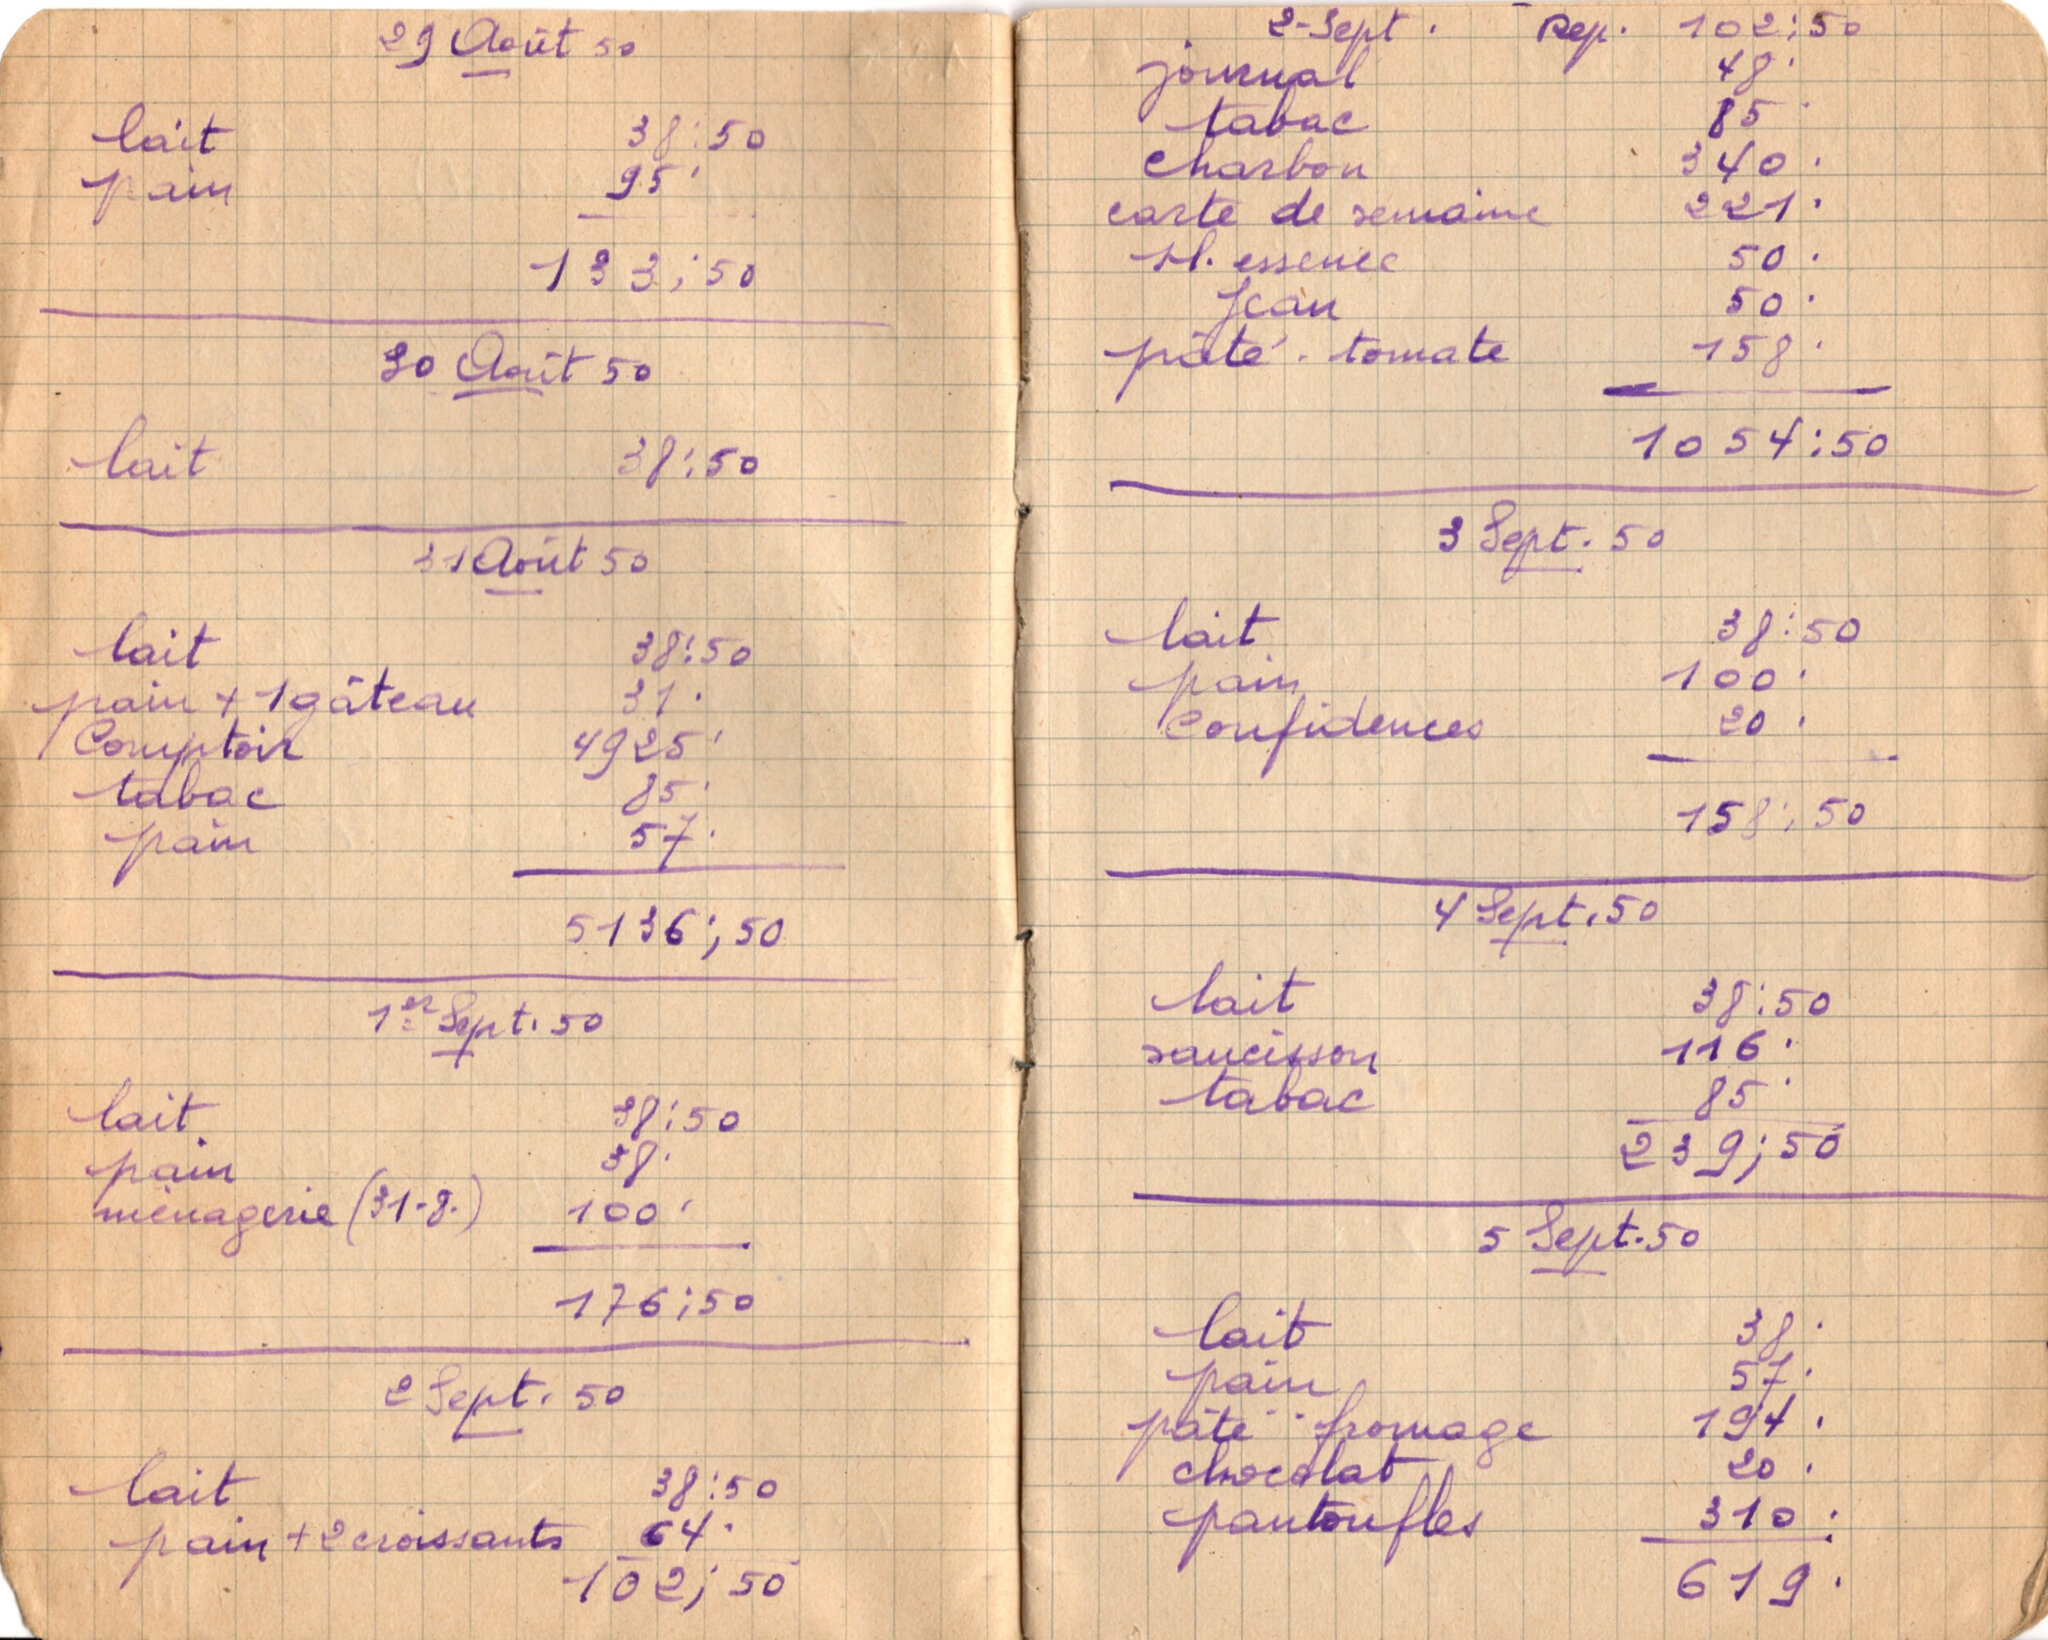 29 Août 50
lait 38;50
pain 95.
133;50
30 Août 50
lait 38;50
31 Août 50
lait 38;50
pain + 1 gâteau 31.
Comptoir 4925.
tabac 85.
pain 57.
5136;50
1er Sept. 50
lait 38;50
pain 38.
ménagerie (31-8.) 100.
176;50
2 Sept. 50
lait 38;50
pain + 2 croissants 64.
102;50
2-Sept. Rep. 102;50
journal 48.
tabac 85.
charbon 340.
carte de semaine 221.
1l. essence 50.
Jean 50.
pâté - tomate 158.
1054;50
3 Sept. 50
lait 38;50
pain 100.
Confidences 20.
158;50
4 Sept. 50
lait 38;50
saucisson 116.
tabac 85.
239;50
5 Sept. 50
lait 38.
pain 57.
pâté - fromage 194.
chocolat 20.
pantoufles 310.
619.